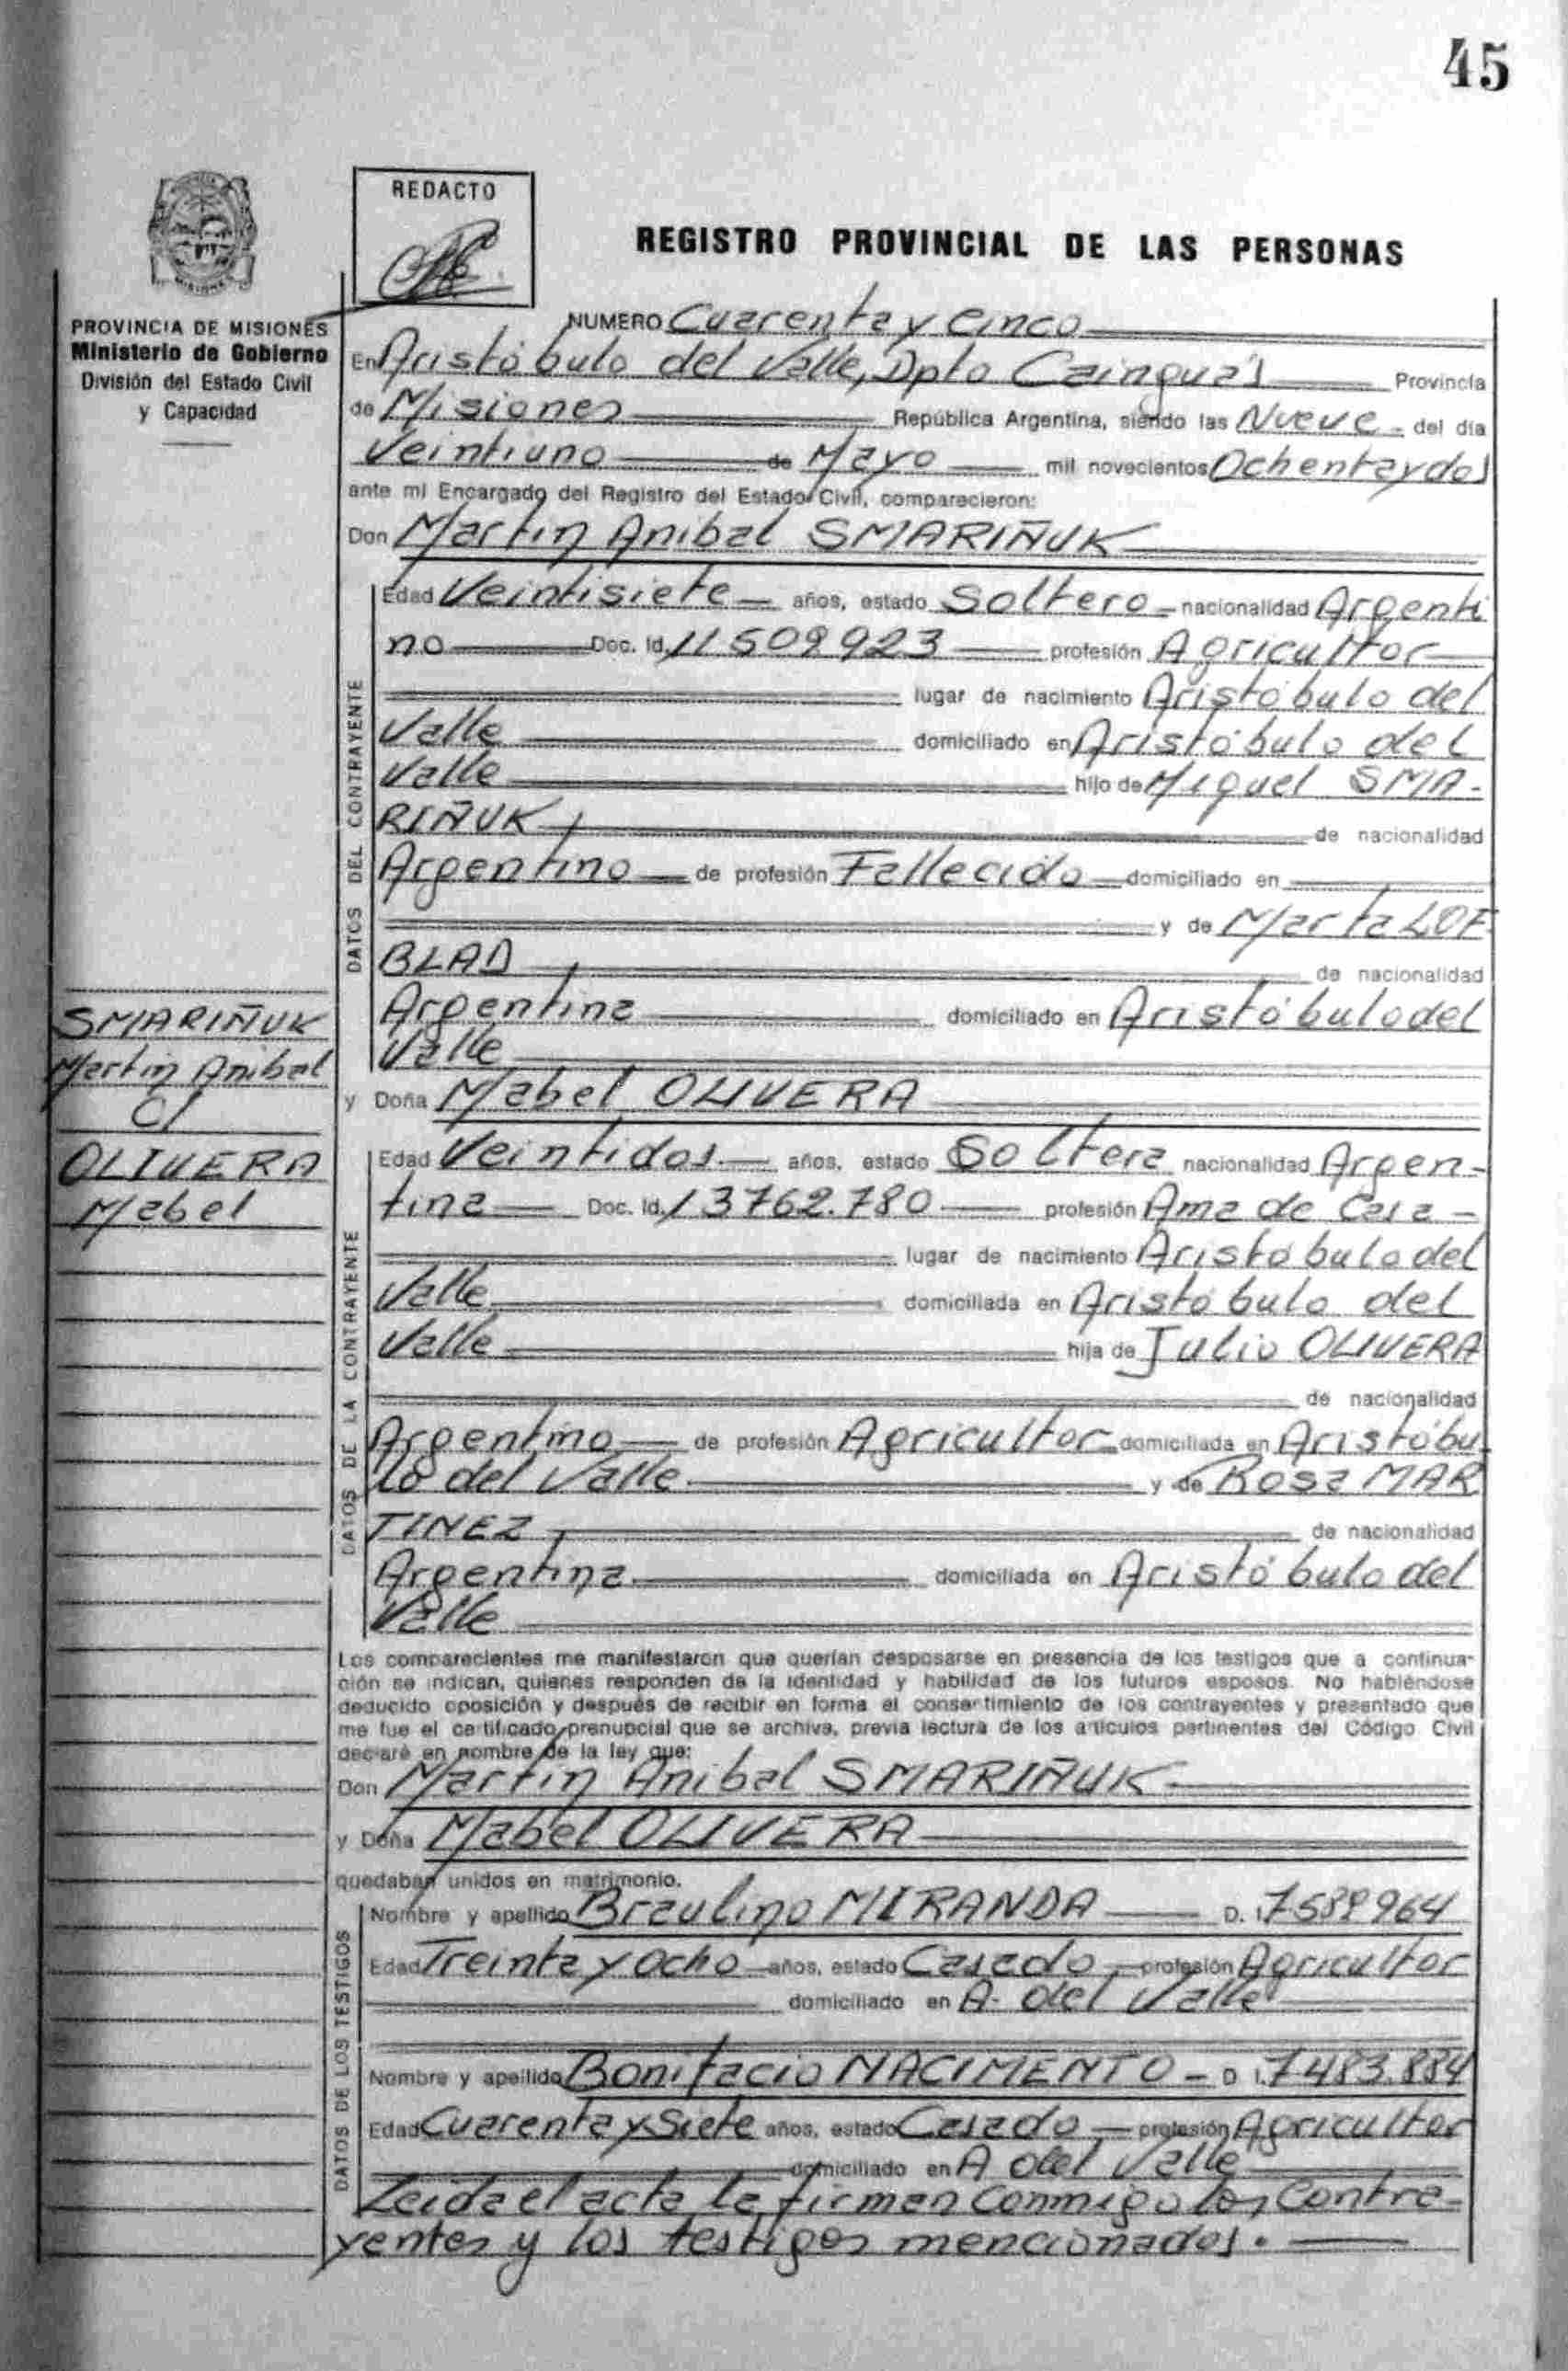 45
REDACTO
REGISTRO PROVINCIAL DE LAS PERSONAS
MISIONES
PROVINCIA DE MISIONES
Ministerio de Gobierno
División del Estado Civil
y Capacidad
NUMERO Cuarenta y Cinco
En Aristóbulo del Valle, Dpto Cainguás Provincia
de Misiones República Argentina, siendo las Nueve del día
Veintiuno de Mayo mil novecientos Ochenta y dos
ante mi Encargado del Registro del Estado Civil, comparecieron:
Don Martin Anibal SMARIÑUK
DATOS DEL CONTRAYENTE
Edad Veintisiete años, estado Soltero nacionalidad Argenti
no Doc. Id. 11509923 profesión Agricultor
lugar de nacimiento Aristóbulo del
Valle domiciliado en Aristóbulo del
Valle hijo de Miguel SMA-
RIÑUK, de nacionalidad
Argentino de profesión Fallecido domiciliado en
y de Marta LOF
BLAD, de nacionalidad
Argentina domiciliado en Aristóbulo del
Valle
SMARIÑUK
Martin Anibal
C/
OLIVERA
Mabel
y Doña Mabel OLIVERA
DATOS DE LA CONTRAYENTE
Edad Veintidos años, estado Soltera nacionalidad Argen-
tina Doc. Id. 13762.780 profesión Ama de Casa -
lugar de nacimiento Aristobulo del
Valle domiciliada en Aristobulo del
Valle hija de Julio OLIVERA
de nacionalidad
Argentino de profesión Agricultor domiciliada en Aristóbu
lo del Valle y de Rosa MAR
TINEZ, de nacionalidad
Argentina domiciliada en Aristóbulo del
Valle
Los comparecientes me manifestaron que querían desposarse en presencia de los testigos que a continua-
ción se indican, quienes responden de la identidad y habilidad de los futuros esposos. No habiéndose
deducido oposición y después de recibir en forma el consentimiento de los contrayentes y presentado que
me fue el certificado prenupcial que se archiva, previa lectura de los artículos pertinentes del Código Civil
declaré en nombre de la ley que:
Don Martin Anibal SMARIÑUK
y Doña Mabel OLIVERA
quedaban unidos en matrimonio.
DATOS DE LOS TESTIGOS
Nombre y apellido Braulino MIRANDA D. I. 7589964
Edad Treinta y ocho años, estado Casado profesión Agricultor
domiciliado en A. del Valle
Nombre y apellido Bonifacio NACIMENTO - D I. 7483.884
Edad Cuarenta y Siete años, estado Casado profesión Agricultor
domiciliado en A del Valle
Leida el acta la firman conmigo los Contra-
yentes y los testigos mencionados.